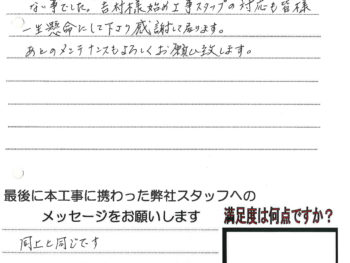 ない事でした。吉村様始め工事スタッフの対応も皆様
一生懸命にして下より感謝して居ります。
あとのメンテナンスもよろしくお願い致します。
最後に本工事に携わった弊社スタッフへの
メッセージをお願いします
満足度は何点ですか？
同上と同じです